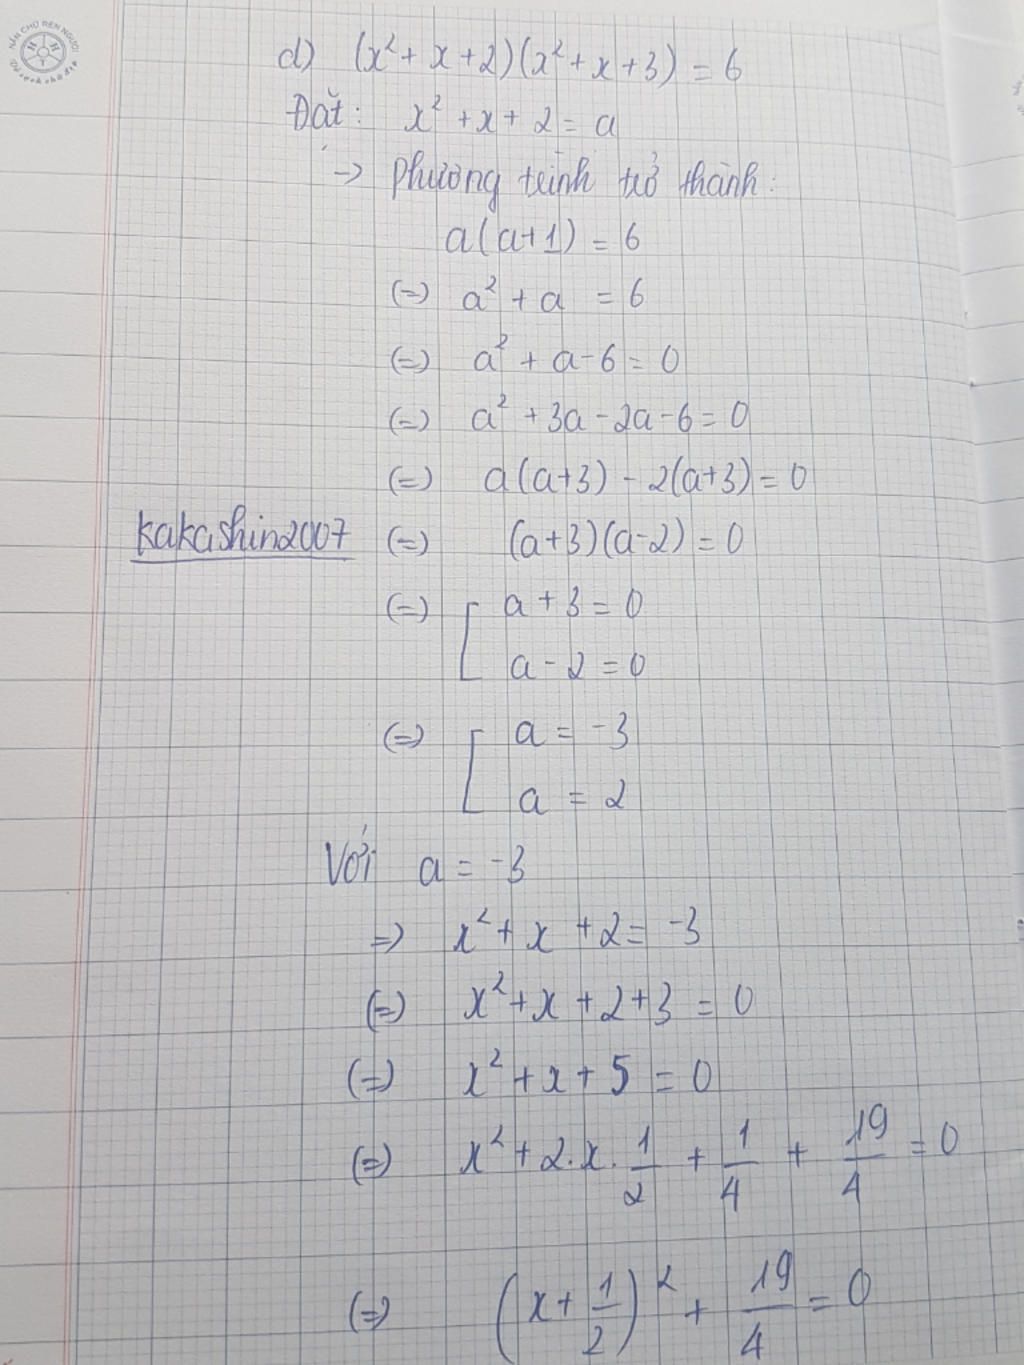 NẮN CHỮ RÈN NGƯỜI
d) (x² + x + 2)(x² + x + 3) = 6
Đặt: x² + x + 2 = a
→ phương trình trở thành:
a(a+1) = 6
(=) a² + a = 6
(=) a² + a - 6 = 0
(=) a² + 3a - 2a - 6 = 0
(=) a(a+3) - 2(a+3) = 0
kakashin2007 (=) (a+3)(a-2) = 0
(=) [ a + 3 = 0
a - 2 = 0
(=) [ a = -3
a = 2
Với a = -3
=> x² + x + 2 = -3
(=) x² + x + 2 + 3 = 0
(=) x² + x + 5 = 0
(=) x² + 2.x.1/2 + 1/4 + 19/4 = 0
(=) (x + 1/2)² + 19/4 = 0